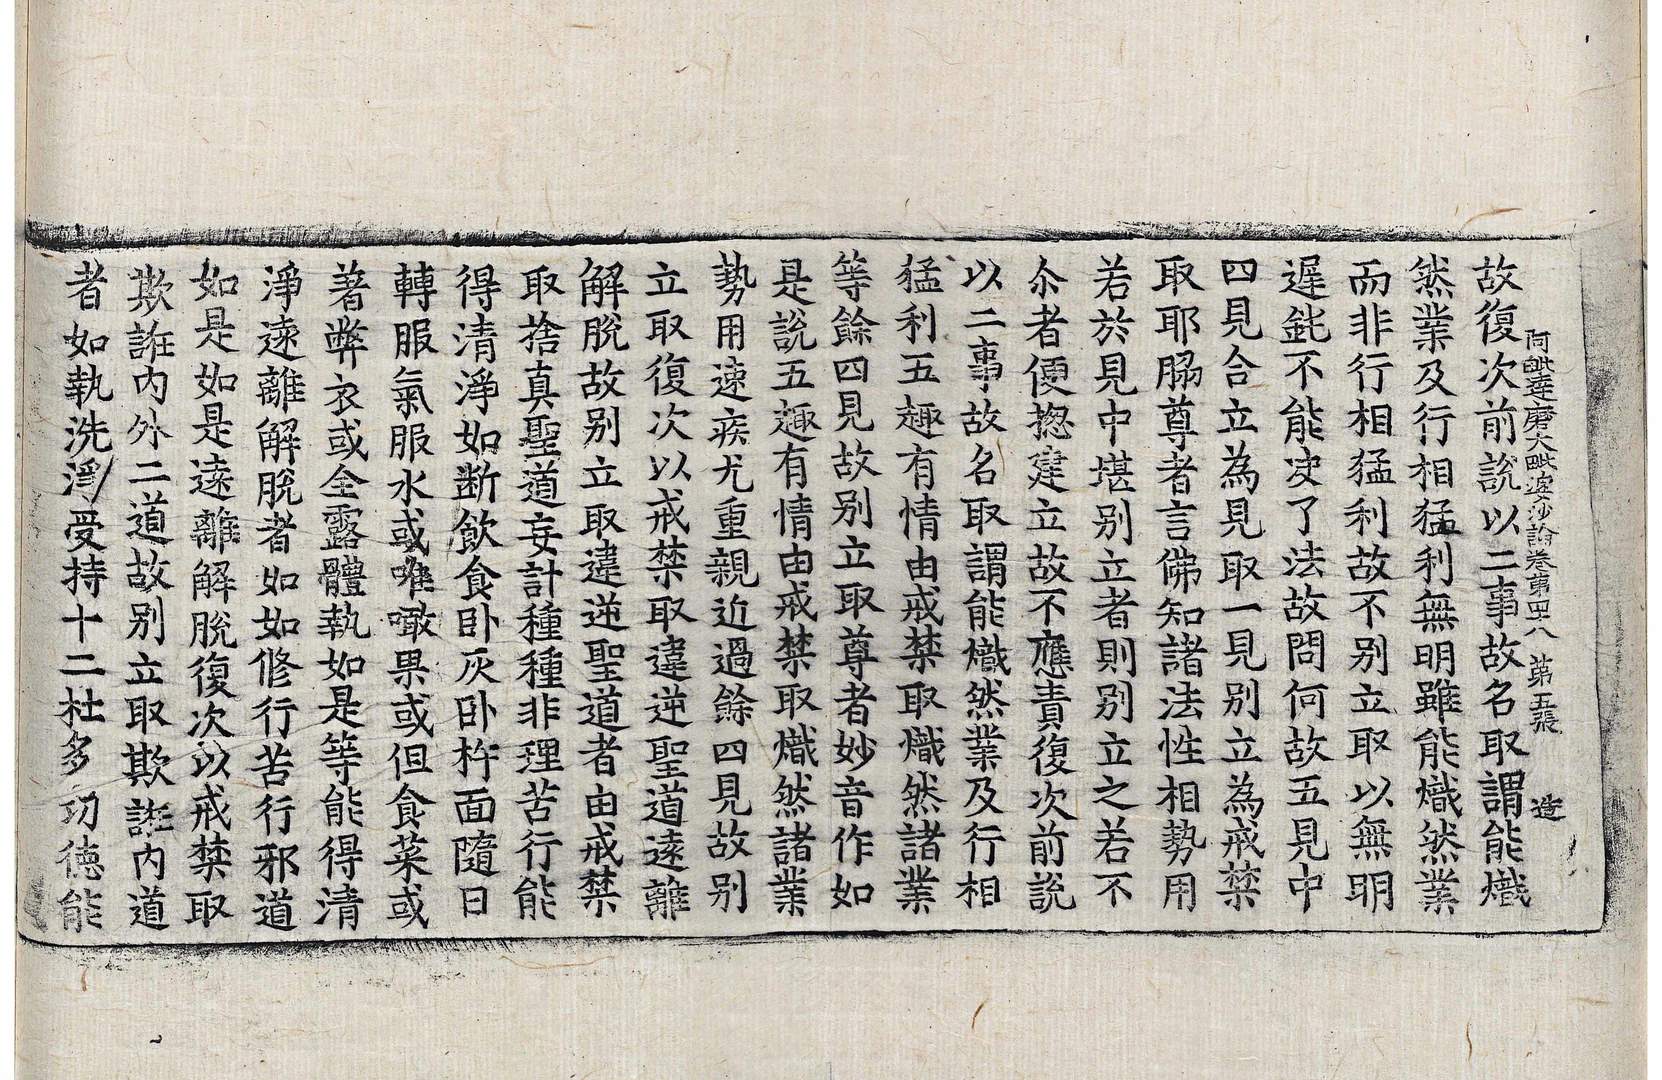 阿毗達磨大毗婆沙論卷第四十八　第五張　造
故復次前說以二事故名取謂能熾
然業及行相猛利無明雖能熾然業
而非行相猛利故不別立取以無明
遲鈍不能决了法故問何故五見中
四見合立為見取一見別立為戒禁
取耶脇尊者言佛知諸法性相勢用
若於見中堪別立者則別立之若不
尒者便揔建立故不應責復次前說
以二事故名取謂能熾然業及行相
猛利五趣有情由戒禁取熾然諸業
等餘四見故別立取尊者妙音作如
是說五趣有情由戒禁取熾然諸業
勢用速疾尤重親近過餘四見故別
立取復次以戒禁取違逆聖道遠離
解脫故別立取違逆聖道者由戒禁
取捨真聖道妄計種種非理苦行能
得清淨如断飲食卧灰卧杵面隨日
轉服氣服水或唯噉果或但食菜或
著弊衣或全露體執如是等能得清
淨遠離解脫者如如修行苦行邪道
如是如是遠離解脫復次以戒禁取
欺誑內外二道故別立取欺誑內道
者如執洗淨受持十二杜多功德能